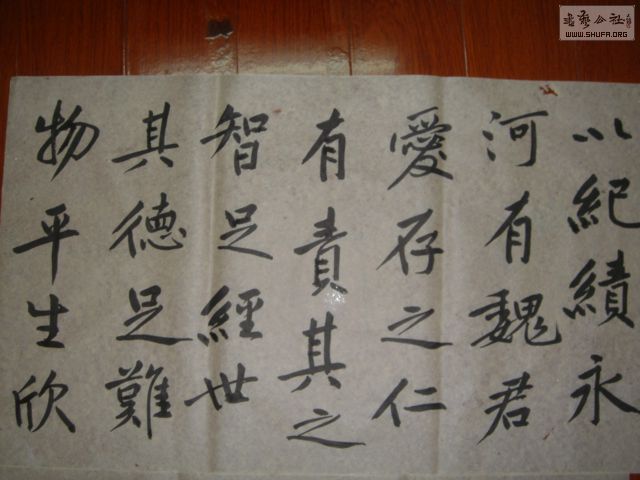 以紀績永
河有魏君
愛存之仁
有責其之
智足經世
其德足難
物平生欣
書藝公社
WWW.SHUFA.ORG